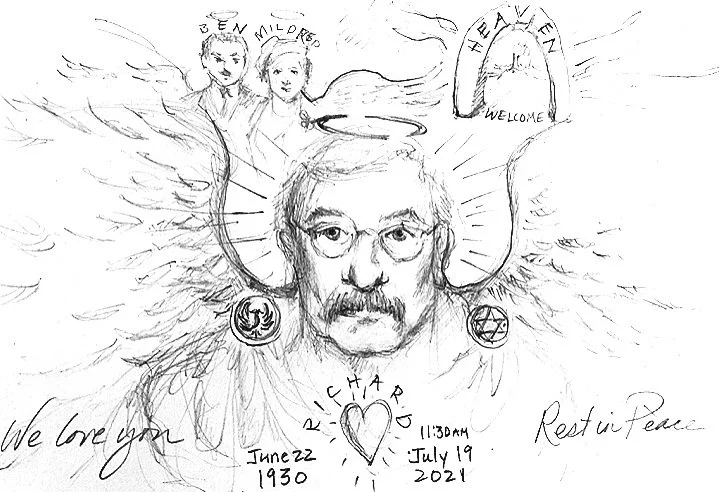 BEN MILDRED
HEAVEN
WELCOME
RICHARD
We love you
Rest in Peace
June 22
1930
11:30 AM
July 19
2021